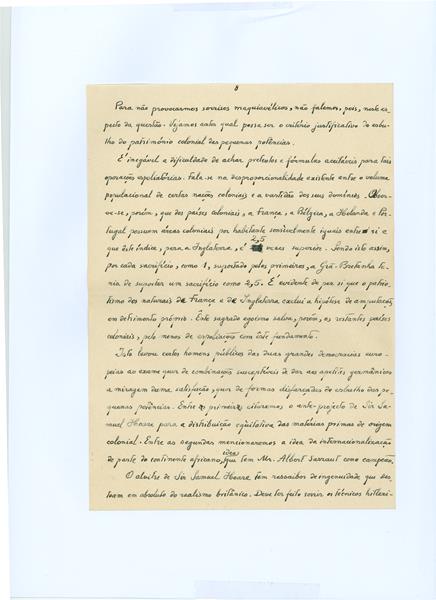 8
Para não provocarmos sorrisos maquiavélicos, não falemos, pois, neste as-
pecto da questão. Vejamos antes qual possa ser o critério justificativo do esbu-
lho do património colonial das pequenas potências.
É inegável a dificuldade de achar pretextos e fórmulas aceitáveis para tais
operações espoliatórias. Fala-se na desproporcionalidade existente entre o volume
populacional de certas nações coloniais e a vastidão dos seus domínios. Obser-
ve-se, porém, que dos países coloniais, a França, a Bélgica, a Holanda e Por-
tugal possuem áreas coloniais por habitante sensivelmente iguais entre si e
que êste índice, para a Inglaterra, é 2,5 vezes superior. Sendo isto assim,
por cada sacrifício, como 1, suportado pelas primeiras, a Grã-Bretanha te-
ria de suportar um sacrifício como 2,5. É evidente de per si que o patrio-
tismo dos naturais de França e de Inglaterra exclui a hipótese de amputações
em detrimento próprio. Êste sagrado egoismo salva, porém, os restantes países
coloniais, pelo menos de espoliações com êste fundamento.
Isto levou certos homens públicos das duas grandes democracias euro-
peias ao exame quer de combinações susceptíveis de dar aos apetites germânicos
a miragem duma satisfação, quer de formas disfarçadas do esbulho das pe-
quenas potências. Entre as primeiras citaremos o ante-projecto de Sir Sa-
muel Hoare para a distribuição eqüitativa das matérias primas de origem
colonial. Entre as segundas mencionaremos a ideia da internacionalização
de parte do continente africano, ideia que tem Mr. Albert Sarraut como campeão.
O alvitre de Sir Samuel Hoare tem ressaibos de ingenuidade que des-
toam em absoluto do realismo britânico. Deve ter feito sorrir os técnicos hitleri-